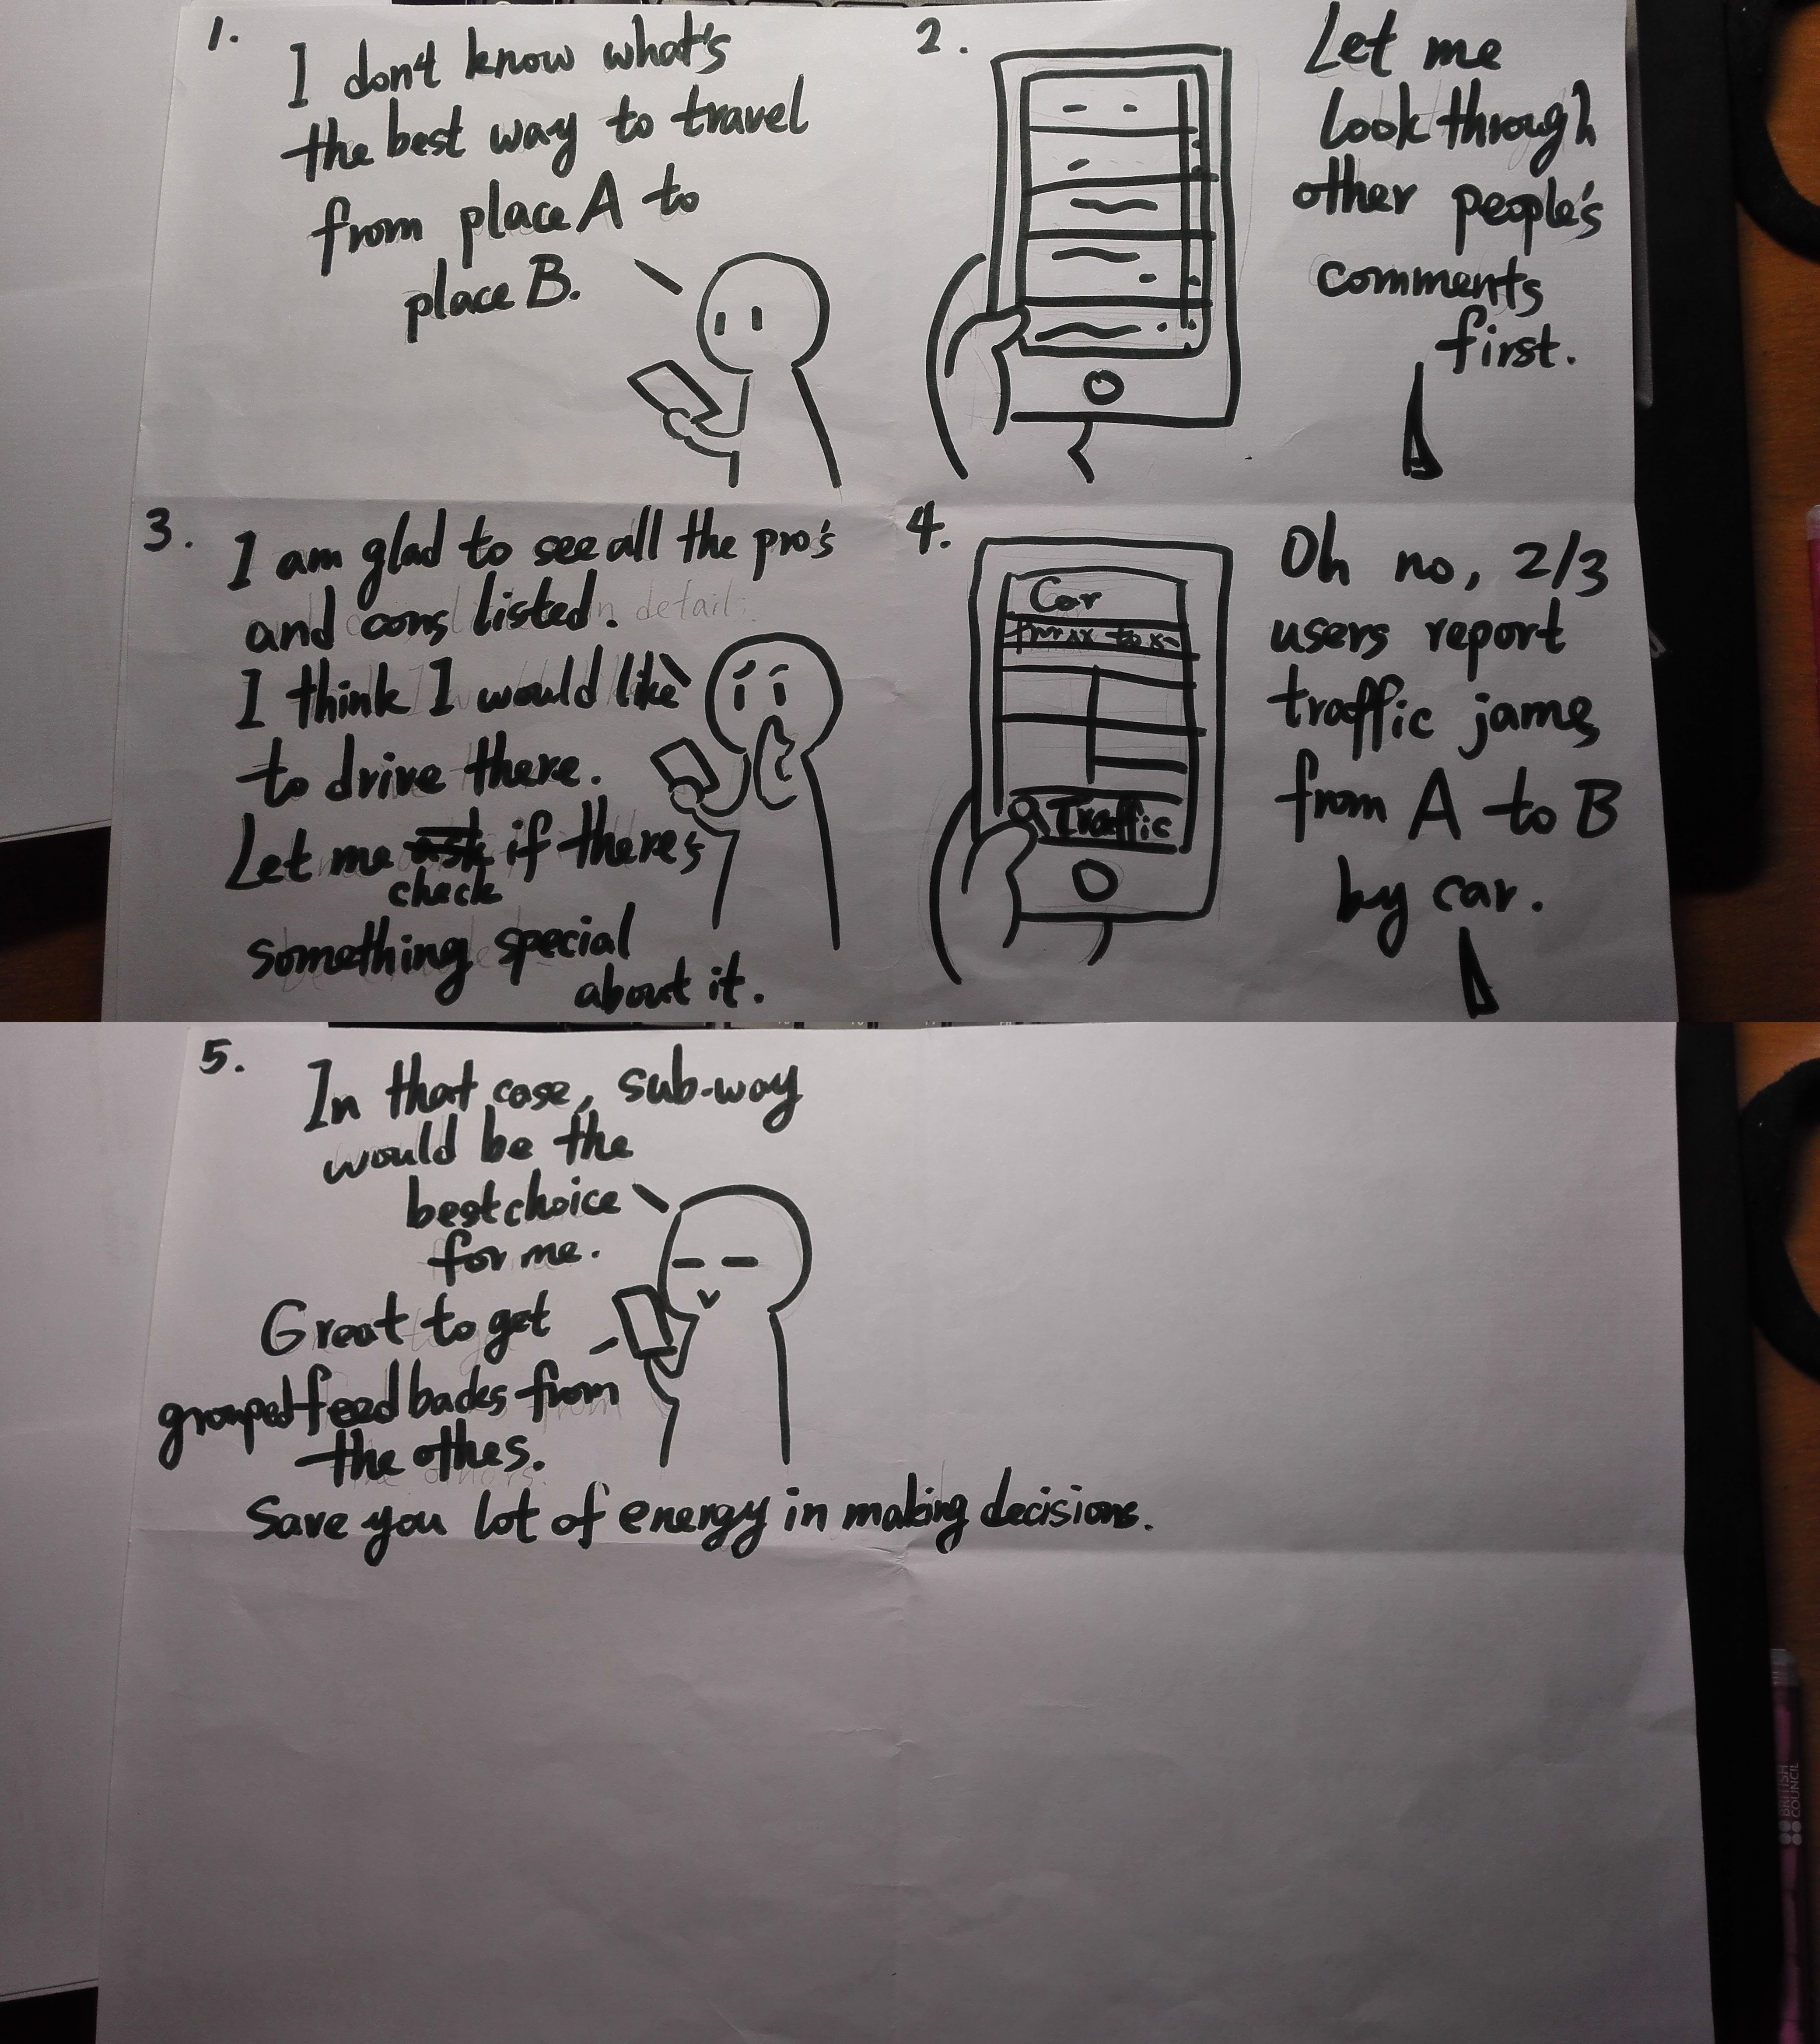 1.
I don't know what's
the best way to travel
from place A to
place B.
2.
Let me
look through
other people's
comments
first.
3.
I am glad to see all the pro's
and cons listed.
I think I would like
to drive there.
Let me ask if there's
check
something special
about it.
4.
Car
Traffic
Oh no, 2/3
users report
traffic jams
from A to B
by car.
5.
In that case, sub-way
would be the
best choice
for me.
Great to get
grouped feed backs from
the othes.
Save you lot of energy in making decisions.
BRITISH
COUNCIL